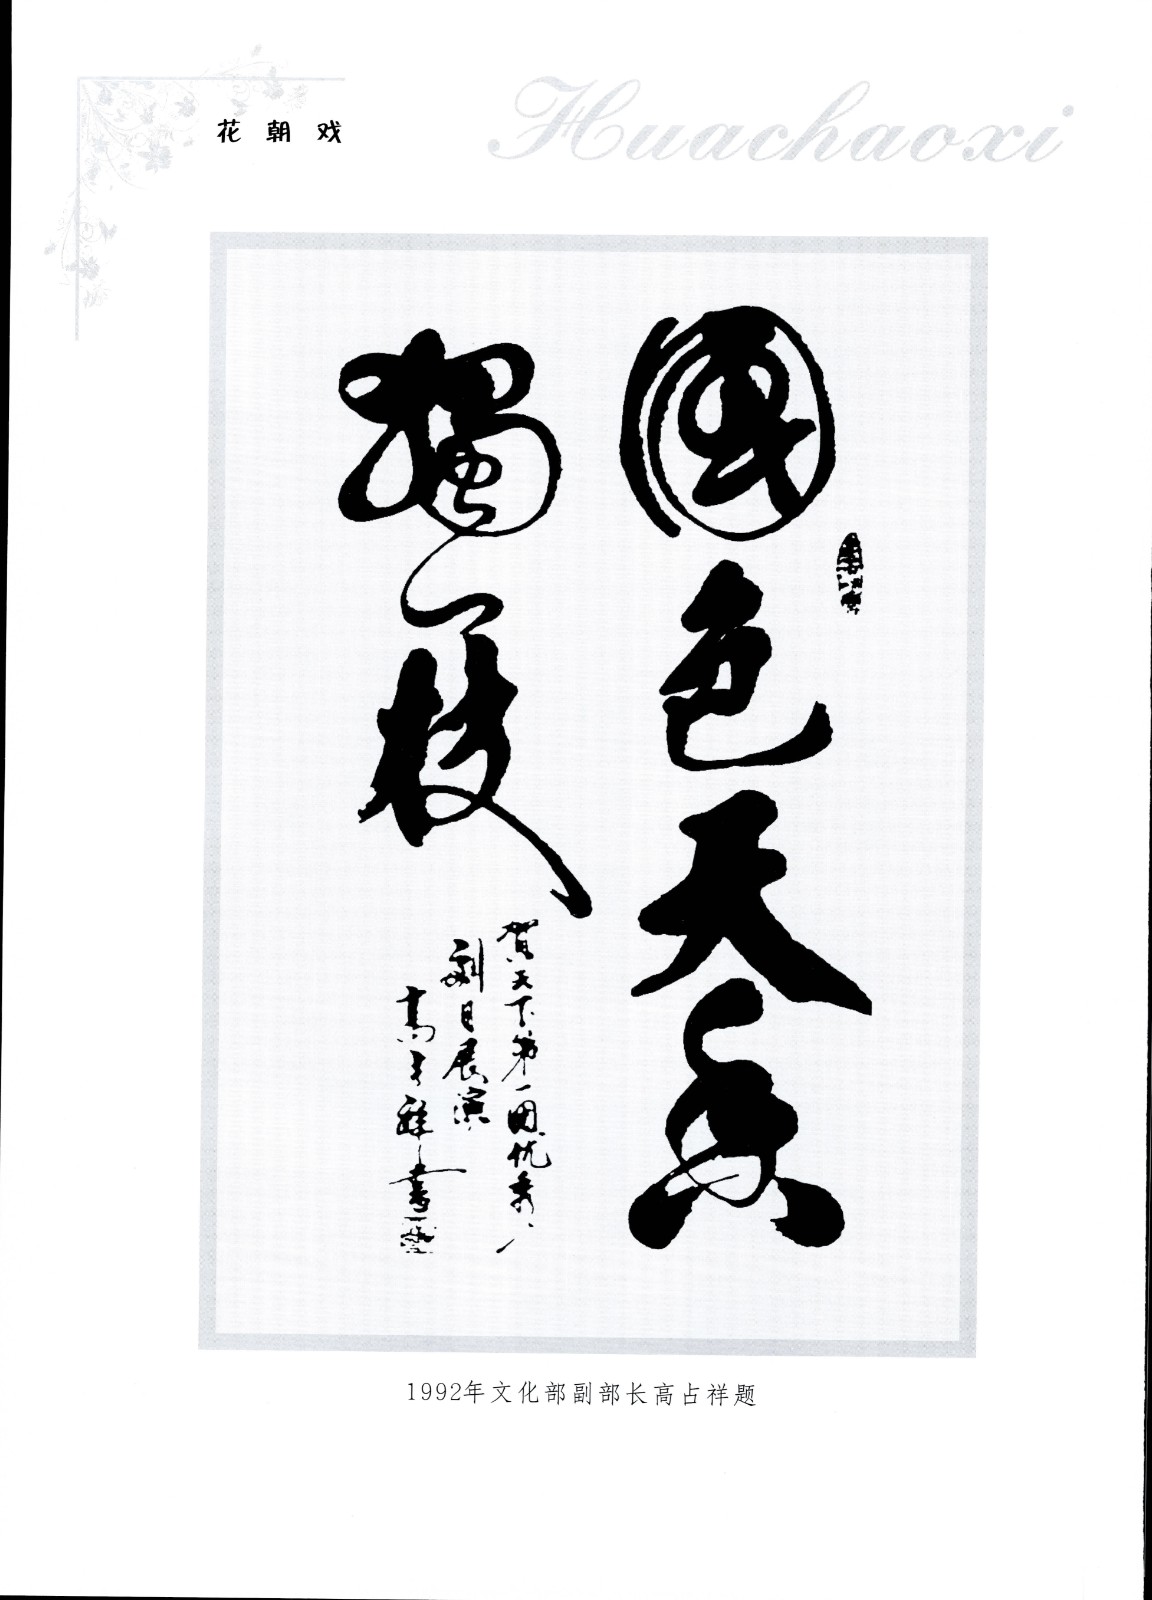 花朝戏
Huachaoxi
國色天香
獨一枝
賀天下第一團优秀
劇目展演
高占祥書
1992年文化部副部长高占祥题